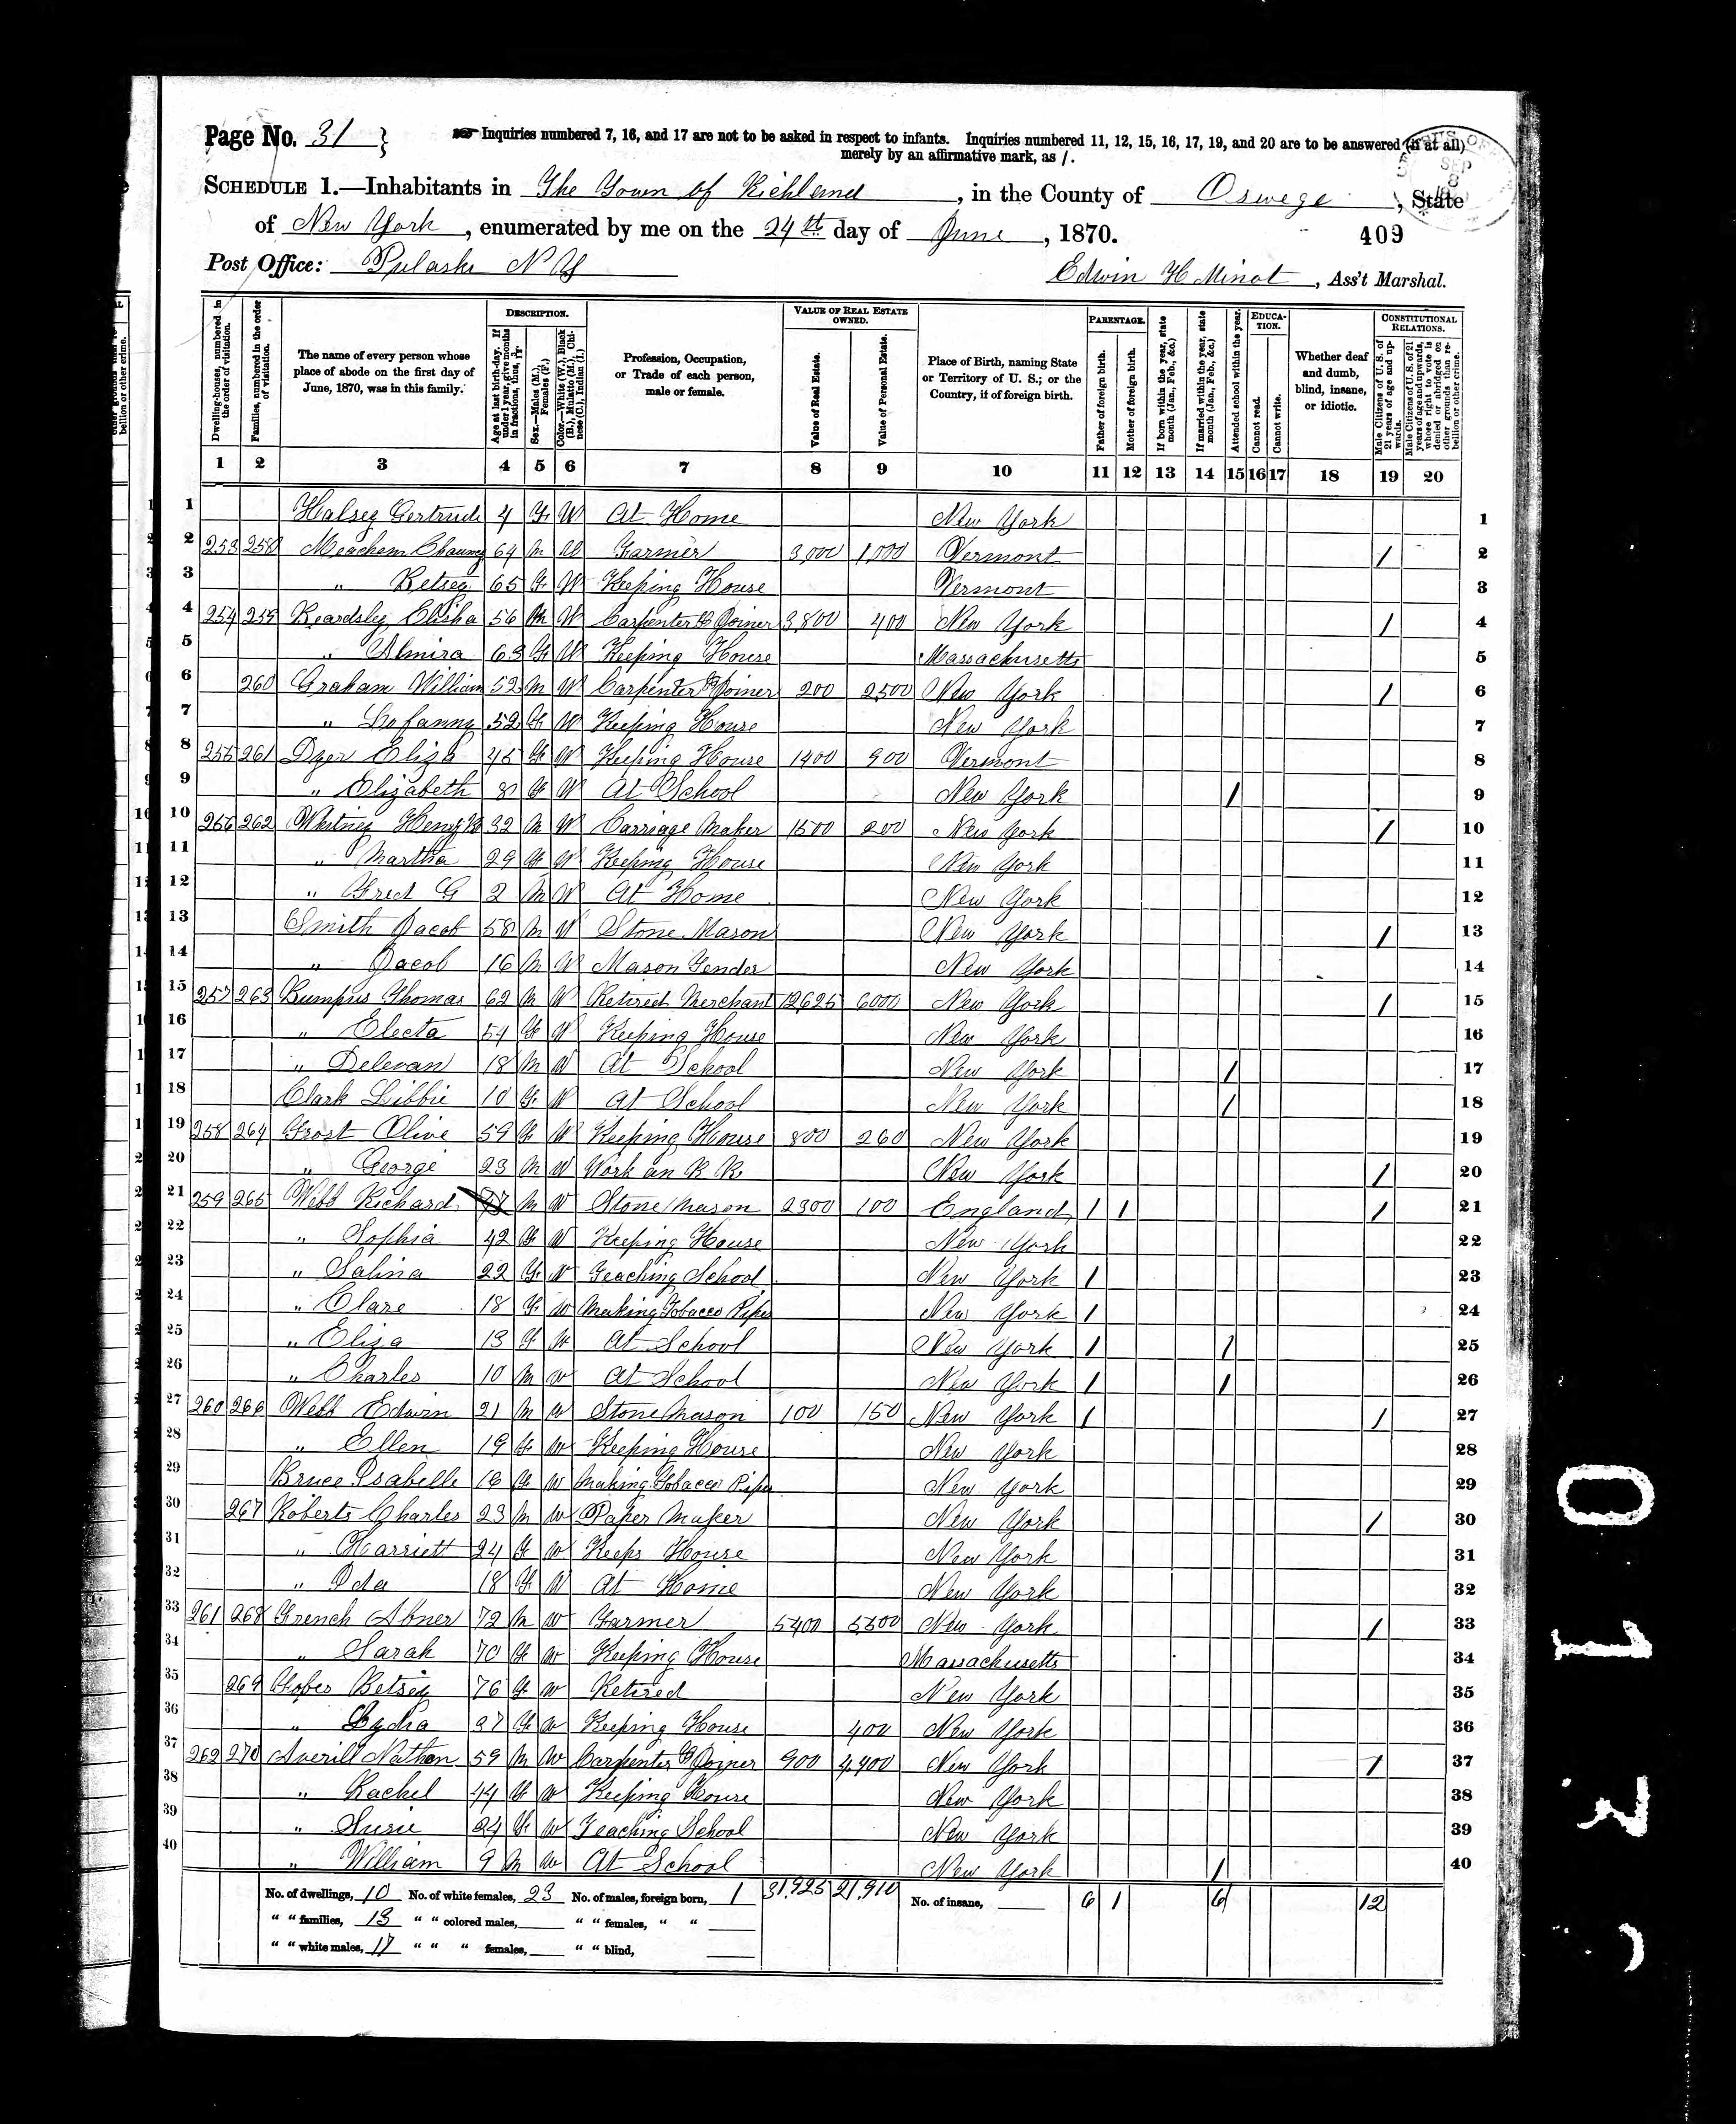 Page No. 31 }
Inquiries numbered 7, 16, and 17 are not to be asked in respect to infants. Inquiries numbered 11, 12, 15, 16, 17, 19, and 20 are to be answered (if at all)
merely by an affirmative mark, as /.
SCHEDULE 1.—Inhabitants in The Town of Richland, in the County of Oswego, State
of New York, enumerated by me on the 24th day of June, 1870.
409
Post Office: Pulaski N Y
Edwin H Minot, Ass't Marshal.
Dwelling-houses, numbered in the order of visitation.
Families, numbered in the order of visitation.
The name of every person whose place of abode on the first day of June, 1870, was in this family.
DESCRIPTION.
Age at last birth-day. If under 1 year, give months in fractions, thus, 3/12.
Sex.—Males (M.), Females (F.)
Color.—White (W.), Black (B.), Mulatto (M.), Chinese (C.), Indian (I.)
Profession, Occupation, or Trade of each person, male or female.
VALUE OF REAL ESTATE OWNED.
Value of Real Estate.
Value of Personal Estate.
Place of Birth, naming State or Territory of U. S.; or the Country, if of foreign birth.
PARENTAGE.
Father of foreign birth.
Mother of foreign birth.
If born within the year, state month (Jan., Feb., &c.)
If married within the year, state month (Jan., Feb., &c.)
Attended school within the year.
EDUCATION.
Cannot read.
Cannot write.
Whether deaf and dumb, blind, insane, or idiotic.
CONSTITUTIONAL RELATIONS.
Male Citizens of U. S. of 21 years of age and upwards.
Male Citizens of U. S. of 21 years of age and upwards, whose right to vote is denied or abridged on other grounds than rebellion or other crime.
1 2 3 4 5 6 7 8 9 10 11 12 13 14 15 16 17 18 19 20
1 Halsey Gertrude 4 F W At Home New York 1
2 253 258 Meachem Chauncy 64 M W Farmer 3,000 1,000 Vermont / 2
3 " Betsey 65 F W Keeping House Vermont 3
4 254 259 Beardsley Elisha 56 M W Carpenter & Joiner 3,800 400 New York / 4
5 " Almira 63 F W Keeping House Massachusetts 5
6 260 Graham William 52 M W Carpenter & Joiner 200 2500 New York / 6
7 " Lofanny 52 F W Keeping House New York 7
8 255 261 Dyer Eliza 45 F W Keeping House 1400 900 Vermont 8
9 " Elizabeth 8 F W At School New York / 9
10 256 262 Whitney Henry 32 M W Carriage Maker 1500 200 New York / 10
11 " Martha 29 F W Keeping House New York 11
12 " Fred G 2 M W At Home New York 12
13 Smith Jacob 58 M W Stone Mason New York / 13
14 " Jacob 16 M W Mason Tender New York 14
15 257 263 Bumpus Thomas 62 M W Retired Merchant 12,625 6000 New York / 15
16 " Electa 54 F W Keeping House New York 16
17 " Delevan 18 M W At School New York / 17
18 Clark Libbie 10 F W At School New York / 18
19 258 264 Frost Olive 59 F W Keeping House 800 260 New York 19
20 " George 23 M W Work on R R New York / 20
21 259 265 Webb Richard M W Stone Mason 2300 100 England / / / 21
22 " Sophia 42 F W Keeping House New York 22
23 " Salina 22 F W Teaching School New York / 23
24 " Clare 18 F W Making Tobacco Pipes New York / 24
25 " Eliza 13 F W At School New York / / 25
26 " Charles 10 M W At School New York / / 26
27 260 266 Webb Edwin 21 M W Stone Mason 100 150 New York / / 27
28 " Ellen 19 F W Keeping House New York 28
29 Bruce Isabelle 16 F W Making Tobacco Pipes New York 29
30 267 Roberts Charles 23 M W Paper Maker New York / 30
31 " Harriett 24 F W Keeps House New York 31
32 " Ida 18 F W At Home New York 32
33 261 268 French Abner 72 M W Farmer 5400 5500 New York / 33
34 " Sarah 70 F W Keeping House Massachusetts 34
35 269 Betsey 76 F W Retired New York 35
36 " Lydia 37 F W Keeping House 400 New York 36
37 262 270 Averill Nathan 59 M W Carpenter & Joiner 900 4,400 New York / 37
38 " Rachel 44 F W Keeping House New York 38
39 " Susie 24 F W Teaching School New York 39
40 " William 9 M W At School New York / 40
No. of dwellings, 10 No. of white females, 23 No. of males, foreign born, 1 31,925 21,910 No. of insane, 6 1 6 12
" " families, 13 " " colored males, " " females, " "
" " white males, 17 " " " females, " " blind,